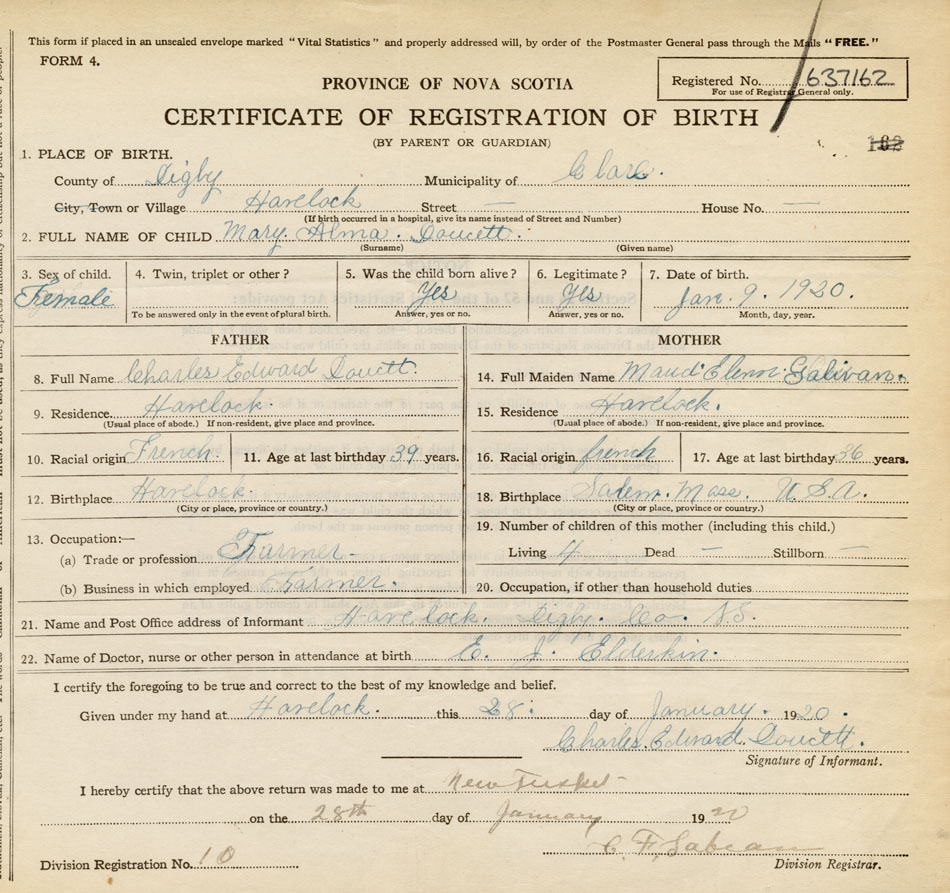 This form if placed in an unsealed envelope marked "Vital Statistics" and properly addressed will, by order of the Postmaster General pass through the Mails "FREE."
FORM 4.
Registered No. 637162
For use of Registrar General only.
PROVINCE OF NOVA SCOTIA
CERTIFICATE OF REGISTRATION OF BIRTH
(BY PARENT OR GUARDIAN)
182
1. PLACE OF BIRTH.
County of Digby Municipality of Clare.
City, Town or Village Havelock Street — House No. —
(If birth occurred in a hospital, give its name instead of Street and Number)
2. FULL NAME OF CHILD Mary. Alma. Doucett.
(Surname) (Given name)
3. Sex of child. 4. Twin, triplet or other? 5. Was the child born alive? 6. Legitimate? 7. Date of birth.
Female Yes Yes Jan. 9. 1920.
To be answered only in the event of plural birth. Answer, yes or no. Answer, yes or no. Month, day, year.
FATHER
8. Full Name Charles Edward Doucett.
9. Residence. Havelock
(Usual place of abode.) If non-resident, give place and province.
10. Racial origin French. 11. Age at last birthday 39 years.
12. Birthplace Havelock.
(City or place, province or country.)
13. Occupation:—
(a) Trade or profession Farmer
(b) Business in which employed Farmer.
MOTHER
14. Full Maiden Name Maud Elenn Salivan.
15. Residence Havelock.
(Usual place of abode.) If non-resident, give place and province.
16. Racial origin french 17. Age at last birthday 36 years.
18. Birthplace Salem. Mass. U.S.A.
(City or place, province or country.)
19. Number of children of this mother (including this child.)
Living 4 Dead — Stillborn —
20. Occupation, if other than household duties
21. Name and Post Office address of Informant Havelock. Digby. Co. N.S.
22. Name of Doctor, nurse or other person in attendance at birth E. J. Elderkin.
I certify the foregoing to be true and correct to the best of my knowledge and belief.
Given under my hand at Havelock. this 28. day of January. 1920.
Charles. Edward. Doucett.
Signature of Informant.
I hereby certify that the above return was made to me at New Tusket
on the 28th day of January 1920
C. F. Sabean
Division Registration No. 10 Division Registrar.